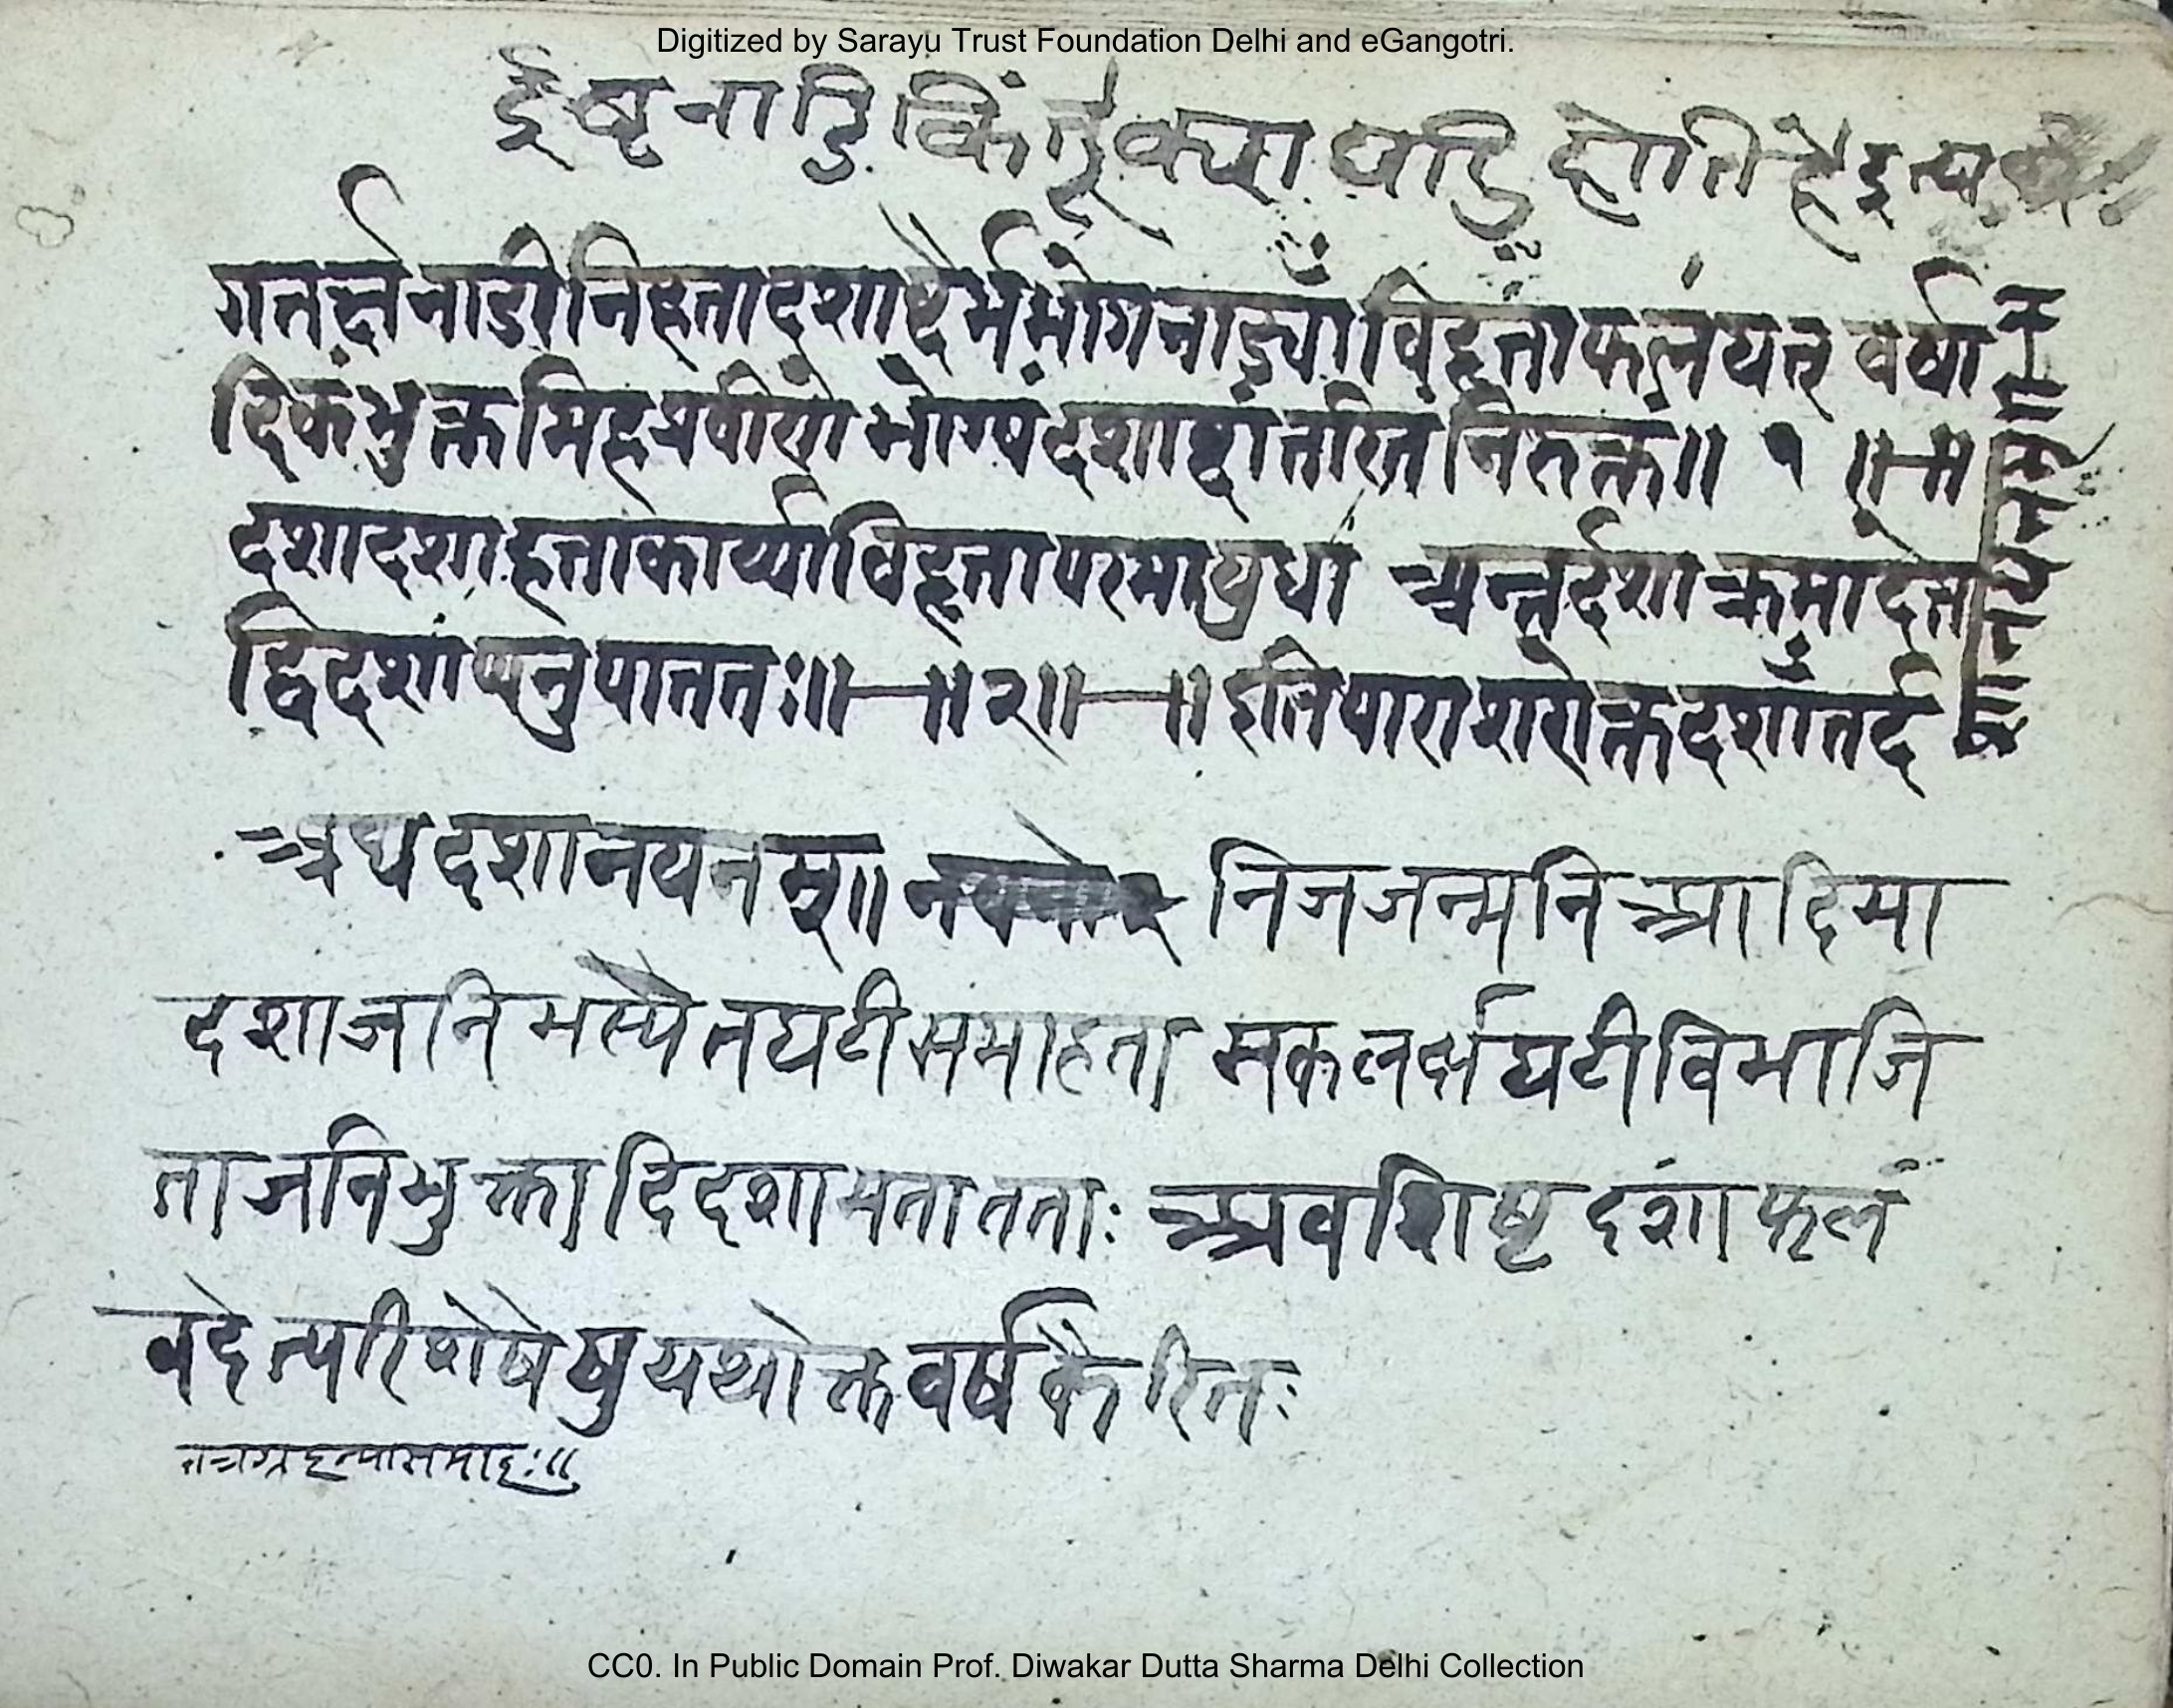 Digitized by Sarayu Trust Foundation Delhi and eGangotri.
ईष्ट नाडि
गतर्क्षनाडीनिहतादशाब्दैर्भभोगनाड्यांविहृतांफलंयत् वर्षा
दिकंभुक्तमिहप्रवीणो भोग्यंदशाब्दांतरितंनिरुक्तं॥ १ ॥—॥
दशादशाहताकार्य्याविहृतापरमायुषा अन्तर्दशाक्रमादेता
द्विदशाप्यनुपाततः॥—॥२॥—॥ इतिपाराशरोक्तदशांतर्द
अथदशानयनम्॥ निजजन्मनिआदिमा
दशाजनिभस्यैतघटीसमाहता सकलर्क्षघटीविभाजि
ताजनिभुक्तादिदशामतातताः अवशिष्टदशाफलं
वदेत्परिशेषेषुयथोक्तवर्षकैरितः
CC0. In Public Domain Prof. Diwakar Dutta Sharma Delhi Collection